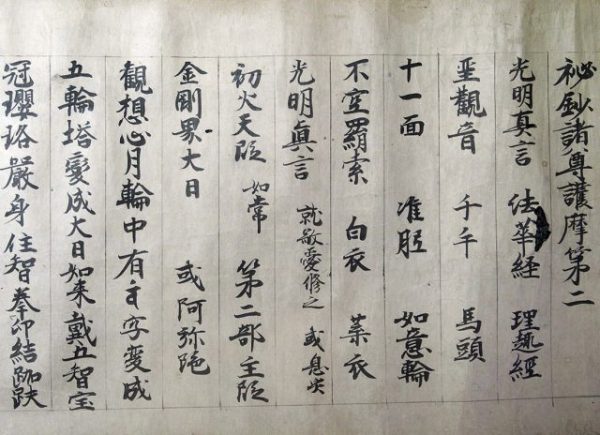 秘鈔諸尊護摩第二
光明真言 法華経 理趣經
聖觀音 千手 馬頭
十一面 准胝 如意輪
不空羂索 白衣 葉衣
光明眞言 就敬愛修之 或息災
初火天段 如常 第二部主段
金剛界大日 或阿弥陁
観想心月輪中有字変成
五輪塔變成大日如来戴五智宝
冠瓔珞嚴身住智拳印結跏趺